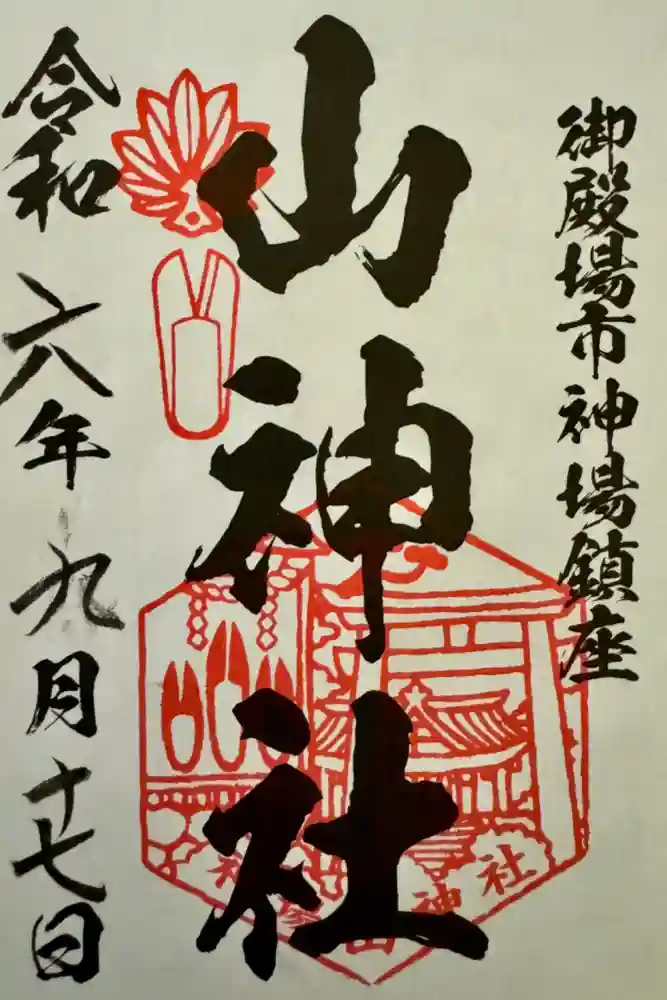 御殿場市神場鎮座
山神社
令和六年九月十七日
神社